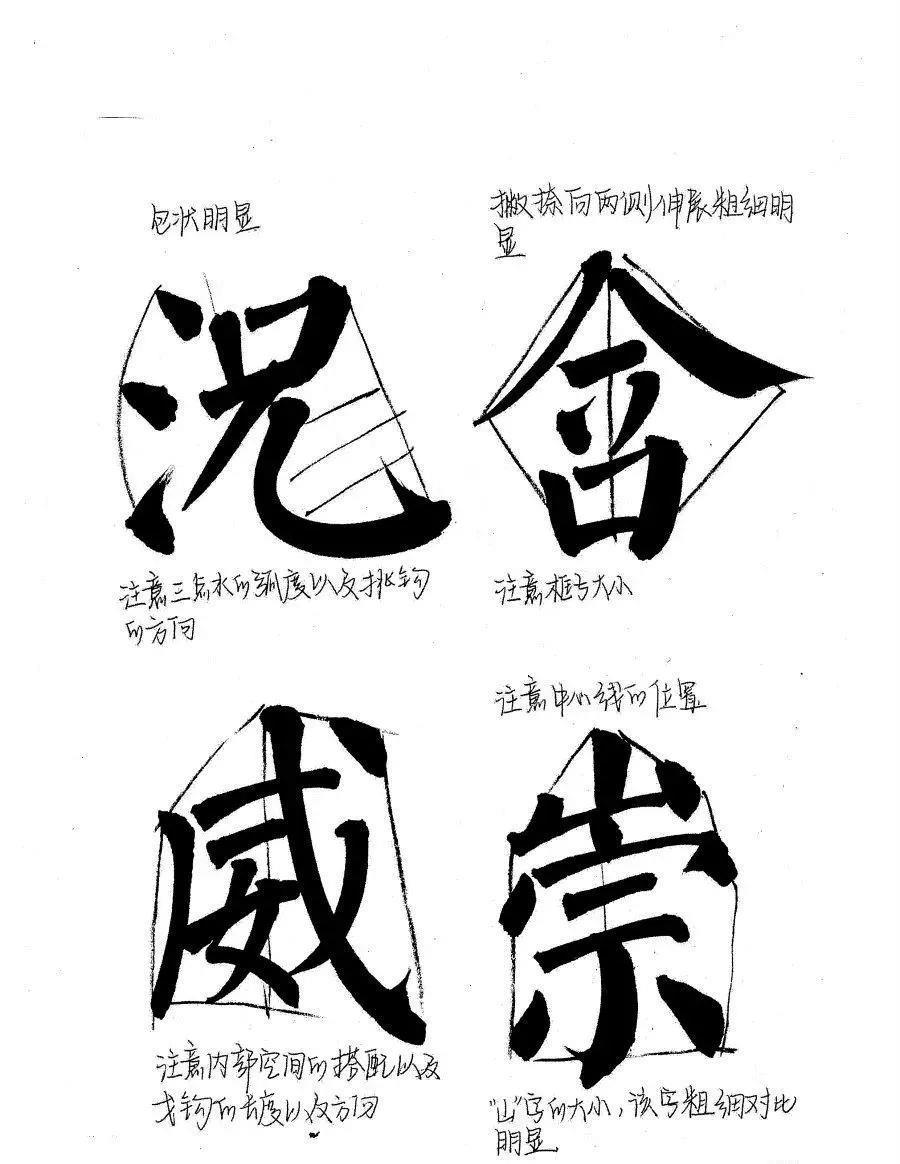 包状明显
況
注意三点水的弧度以及挑钩
的方向
撇捺向两侧伸展粗细明
显
舍
注意框与大小
威
注意内部空间的搭配以及
戈钩的长度以及方向
注意中心线的位置
崇
“山”字的大小，该字粗细对比
明显